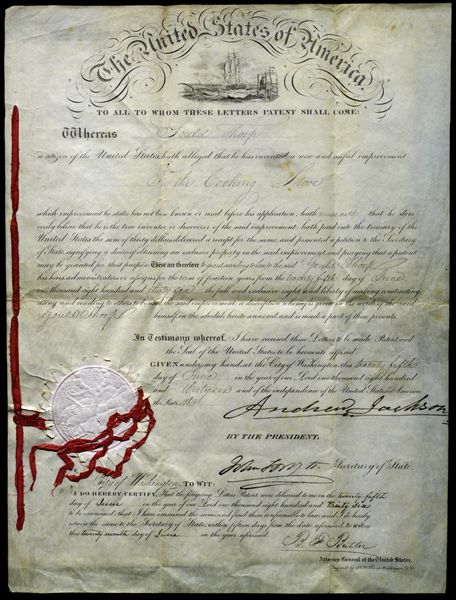 The United States of America
TO ALL TO WHOM THESE LETTERS PATENT SHALL COME:
Whereas Gould Thorp
a citizen of the United States, hath alleged that he has invented a new and useful improvement
In the Cooking Stove
which improvement he states has not been known or used before his application; hath made oath that he does
verily believe that he is the true inventor or discoverer of the said improvement; hath paid into the treasury of the
United States the sum of thirty dollars, delivered a receipt for the same, and presented a petition to the Secretary
of State, signifying a desire of obtaining an exclusive property in the said improvement, and praying that a patent
may be granted for that purpose: These are therefore to grant, according to law, to the said Gould Thorp
his heirs, administrators or assigns, for the term of fourteen years, from the twenty fifth day of June
one thousand eight hundred and thirty six the full and exclusive right and liberty of making, constructing,
using, and vending to others to be used the said improvement, a description whereof is given in the words of the said
Gould Thorp himself, in the schedule hereto annexed, and is made a part of these presents.
In Testimony whereof, I have caused these Letters to be made Patent, and
the Seal of the United States to be hereunto affixed.
GIVEN under my hand, at the City of Washington, this twenty fifth
day of June in the year of our Lord one thousand eight hundred
and thirty six and of the independence of the United States of America
the
Andrew Jackson
BY THE PRESIDENT,
John Forsyth Secretary of State
City of Washington, TO WIT:
I DO HEREBY CERTIFY, That the foregoing Letters Patent were delivered to me on the twenty fifth
day of June in the year of our Lord one thousand eight hundred and thirty six
to be examined; that I have examined the same and find them conformable to law; and I do hereby
return the same to the Secretary of State, within fifteen days from the date aforesaid, to wit: on
this twenty seventh day of June in the year aforesaid.
B. F. Butler
Attorney General of the United States.